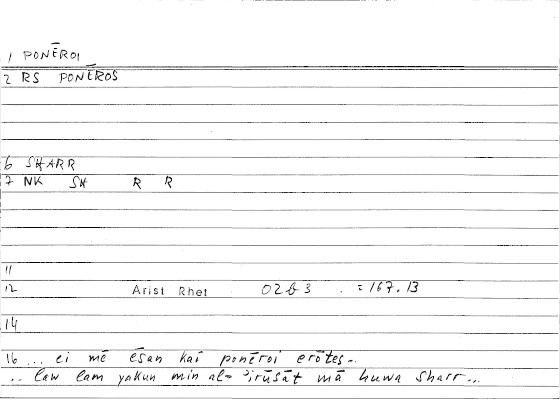 1 PONĒROI
2 RS PONĒROS
6 SHARR
7 NK SH R R
11
12 Arist Rhet 02b3 . = 167.13
14
16 ... ei mē ēsan kai ponēroi erōtes..
.. law lam yakun min al- ʾirūsāt mā huwa sharr...